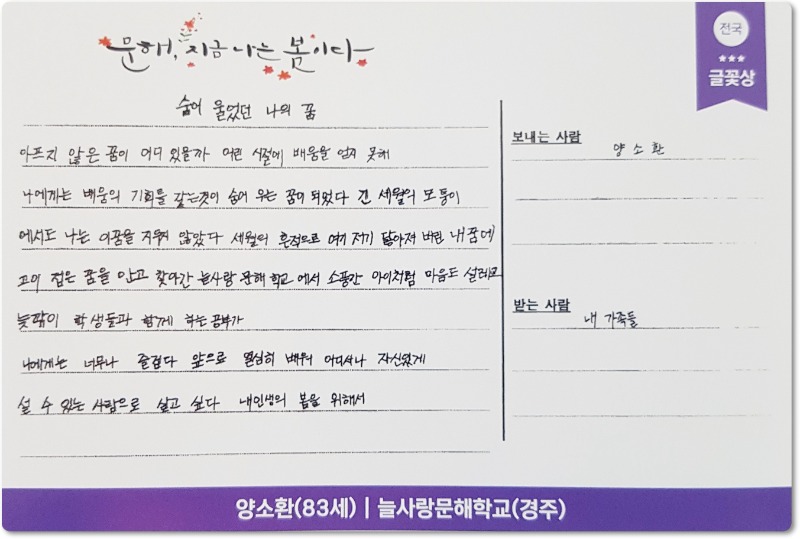 문해, 지금 나는 봄이다
전국
글꽃상
숨어 울었던 나의 꿈
아프지 않은 꿈이 어디 있을까 어린 시절에 배움을 얻지 못해
나에게는 배움의 기회를 갖는것이 숨어 우는 꿈이 되었다 긴 세월의 모퉁이
에서도 나는 이꿈을 지우지 않았다 세월의 흔적으로 여기 저기 닳아져 버린 내 꿈에
고이 접은 꿈을 안고 찾아간 늘사랑 문해 학교 에서 소풍간 아이처럼 마음도 설레고
늦깎이 학생들과 함께 하는 공부가
나에게는 너무나 즐겁다 앞으로 열심히 배워 어디서나 자신있게
설 수 있는 사람으로 살고 싶다 내인생의 봄을 위해서
보내는 사람
양 소 환
받는 사람
내 가족들
양소환(83세) | 늘사랑문해학교(경주)